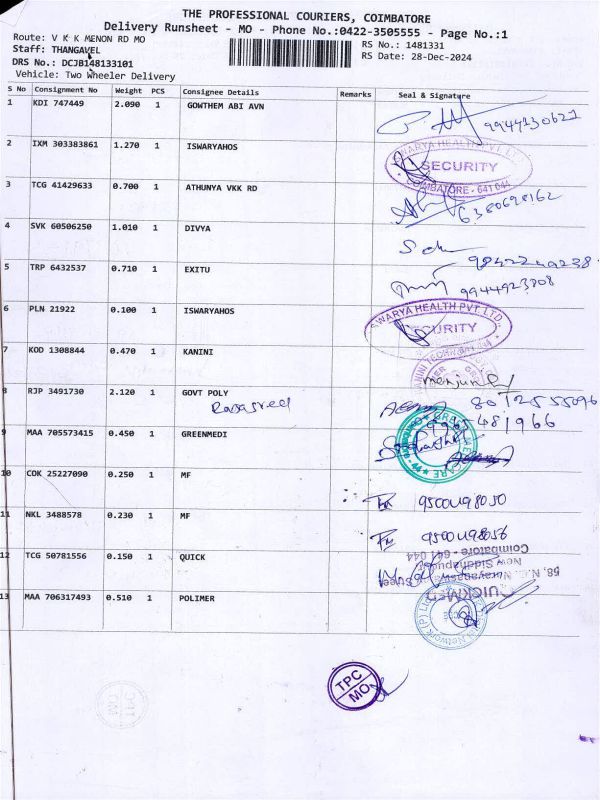 THE PROFESSIONAL COURIERS, COIMBATORE
Delivery Runsheet - MO - Phone No.:0422-3505555 - Page No.:1
Route: V K K MENON RD MO
Staff: THANGAVEL
DRS No.: DCJB148133101
Vehicle: Two Wheeler Delivery
RS No.: 1481331
RS Date: 28-Dec-2024
S No Consignment No Weight PCS Consignee Details Remarks Seal & Signature
1 KDI 747449 2.090 1 GOWTHEM ABI AVN
9944230627
2 IXM 303383861 1.270 1 ISWARYAHOS
SWARYA HEALTH PVT. LTD.
SECURITY
COIMBATORE - 641 044
3 TCG 41429633 0.700 1 ATHUNYA VKK RD
6380698162
4 SVK 60506250 1.010 1 DIVYA
5 TRP 6432537 0.710 1 EXITU
9944923808
6 PLN 21922 0.100 1 ISWARYAHOS
SWARYA HEALTH PVT. LTD.
CURITY
7 KOD 1308844 0.470 1 KANINI
8 RJP 3491730 2.120 1 GOVT POLY
9 MAA 705573415 0.450 1 GREENMEDI
10 COK 25227090 0.250 1 MF
9500498050
11 NKL 3488578 0.230 1 MF
9500498056
12 TCG 50781556 0.150 1 QUICK
Coimbatore - 641 044
New Siddhapudur
13 MAA 706317493 0.510 1 POLIMER
TPC
MO
TPC
MO